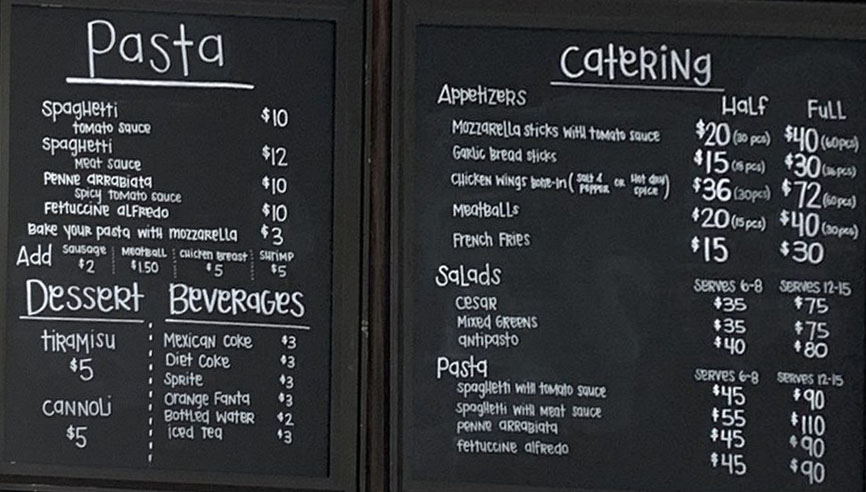 Pasta
Spaghetti $10
tomato sauce
Spaghetti $12
Meat sauce
Penne arrabiata $10
Spicy tomato sauce
Fettuccine alfredo $10
Bake your pasta with mozzarella $3
Add Sausage $2 Meatball $1.50 Chicken Breast $5 Shrimp $5
Dessert
tiramisu
$5
Cannoli
$5
Beverages
Mexican Coke $3
Diet Coke $3
Sprite $3
Orange Fanta $3
Bottled Water $2
iced tea $3
Catering
Appetizers Half Full
Mozzarella sticks with tomato sauce $20 (30 pcs) $40 (60 pcs)
Garlic Bread sticks $15 (18 pcs) $30 (36 pcs)
Chicken wings bone-in (salt & pepper or Hot dry spice) $36 (30 pcs) $72 (60 pcs)
Meatballs $20 (15 pcs) $40 (30 pcs)
French Fries $15 $30
Salads Serves 6-8 Serves 12-15
Cesar $35 $75
Mixed Greens $35 $75
antipasto $40 $80
Pasta Serves 6-8 Serves 12-15
spaghetti with tomato sauce $45 $90
spaghetti with meat sauce $55 $110
penne arrabiata $45 $90
fettuccine alfredo $45 $90